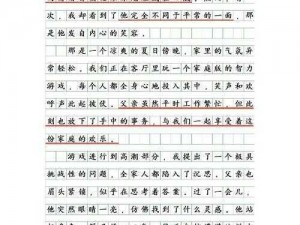 次，我却看到了他完全不同于平常的一面，那
是他发自内心的笑容。
那是一个凉爽的夏日傍晚，家里的气氛异
常轻松，我们正在客厅里玩一个家庭版的智力
游戏，每个人都全身心地投入其中，笑声和欢
呼声此起彼伏。父亲虽然平时工作繁忙，但此
刻也放下了手中的事务，与我们一起享受着这
份家庭的欢乐。
游戏进行到高潮部分，我提出了一个极具
挑战性的问题，全家人都陷入了沉思。父亲也
眉头紧锁，似乎在思考着答案。过了一会儿，
他突然眼睛一亮，仿佛找到了什么灵感。他站